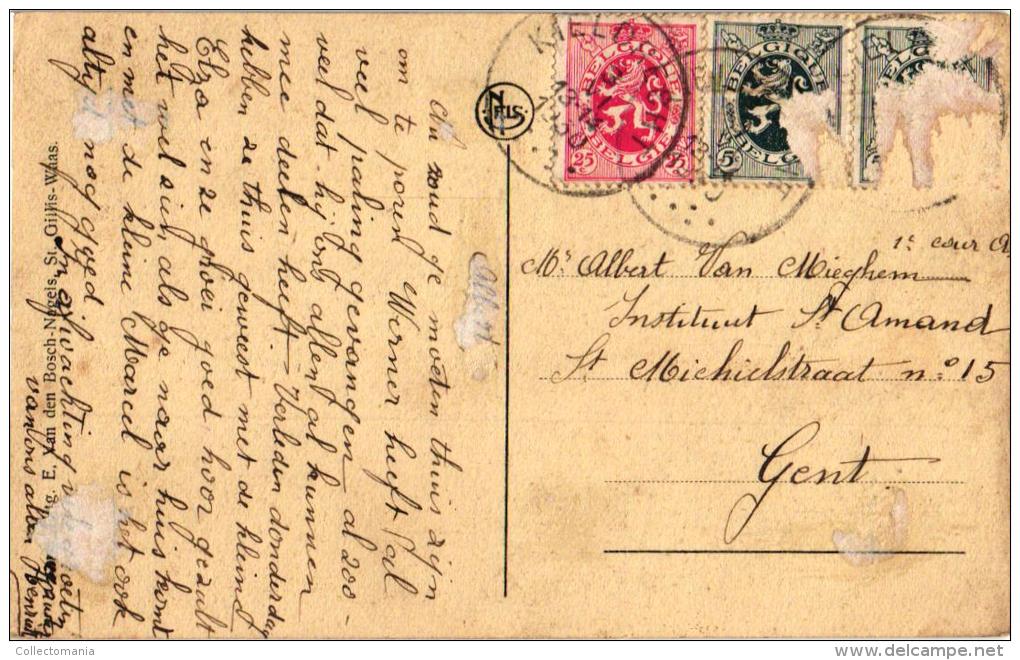 Albert
Nu zoud ge moeten thuis zijn
om te poeren Werner heeft al
veel paling gevangen al zoo
veel dat hij ons allen al kunnen
mee deelen heeft. Verleden donderdag
hebben ze thuis geweest met de kleine
Elza en ze groei goed hoor ge zult
het wel zien als ge naar huis komt
en met de kleine Marcel is het ook
altijd nog goed.
van ons allen
Uitg. E. Van den Bosch-Nagels, St. Gillis-Waas.
NELS
KIELDRECHT
BELGIQUE
BELGIE
25 25
BELGIQUE
BELGIE
5
1e cour A
Mr Albert Van Mieghem
Instituut St Amand
St Michielstraat no 15
Gent
Collectomania
delcampe.net